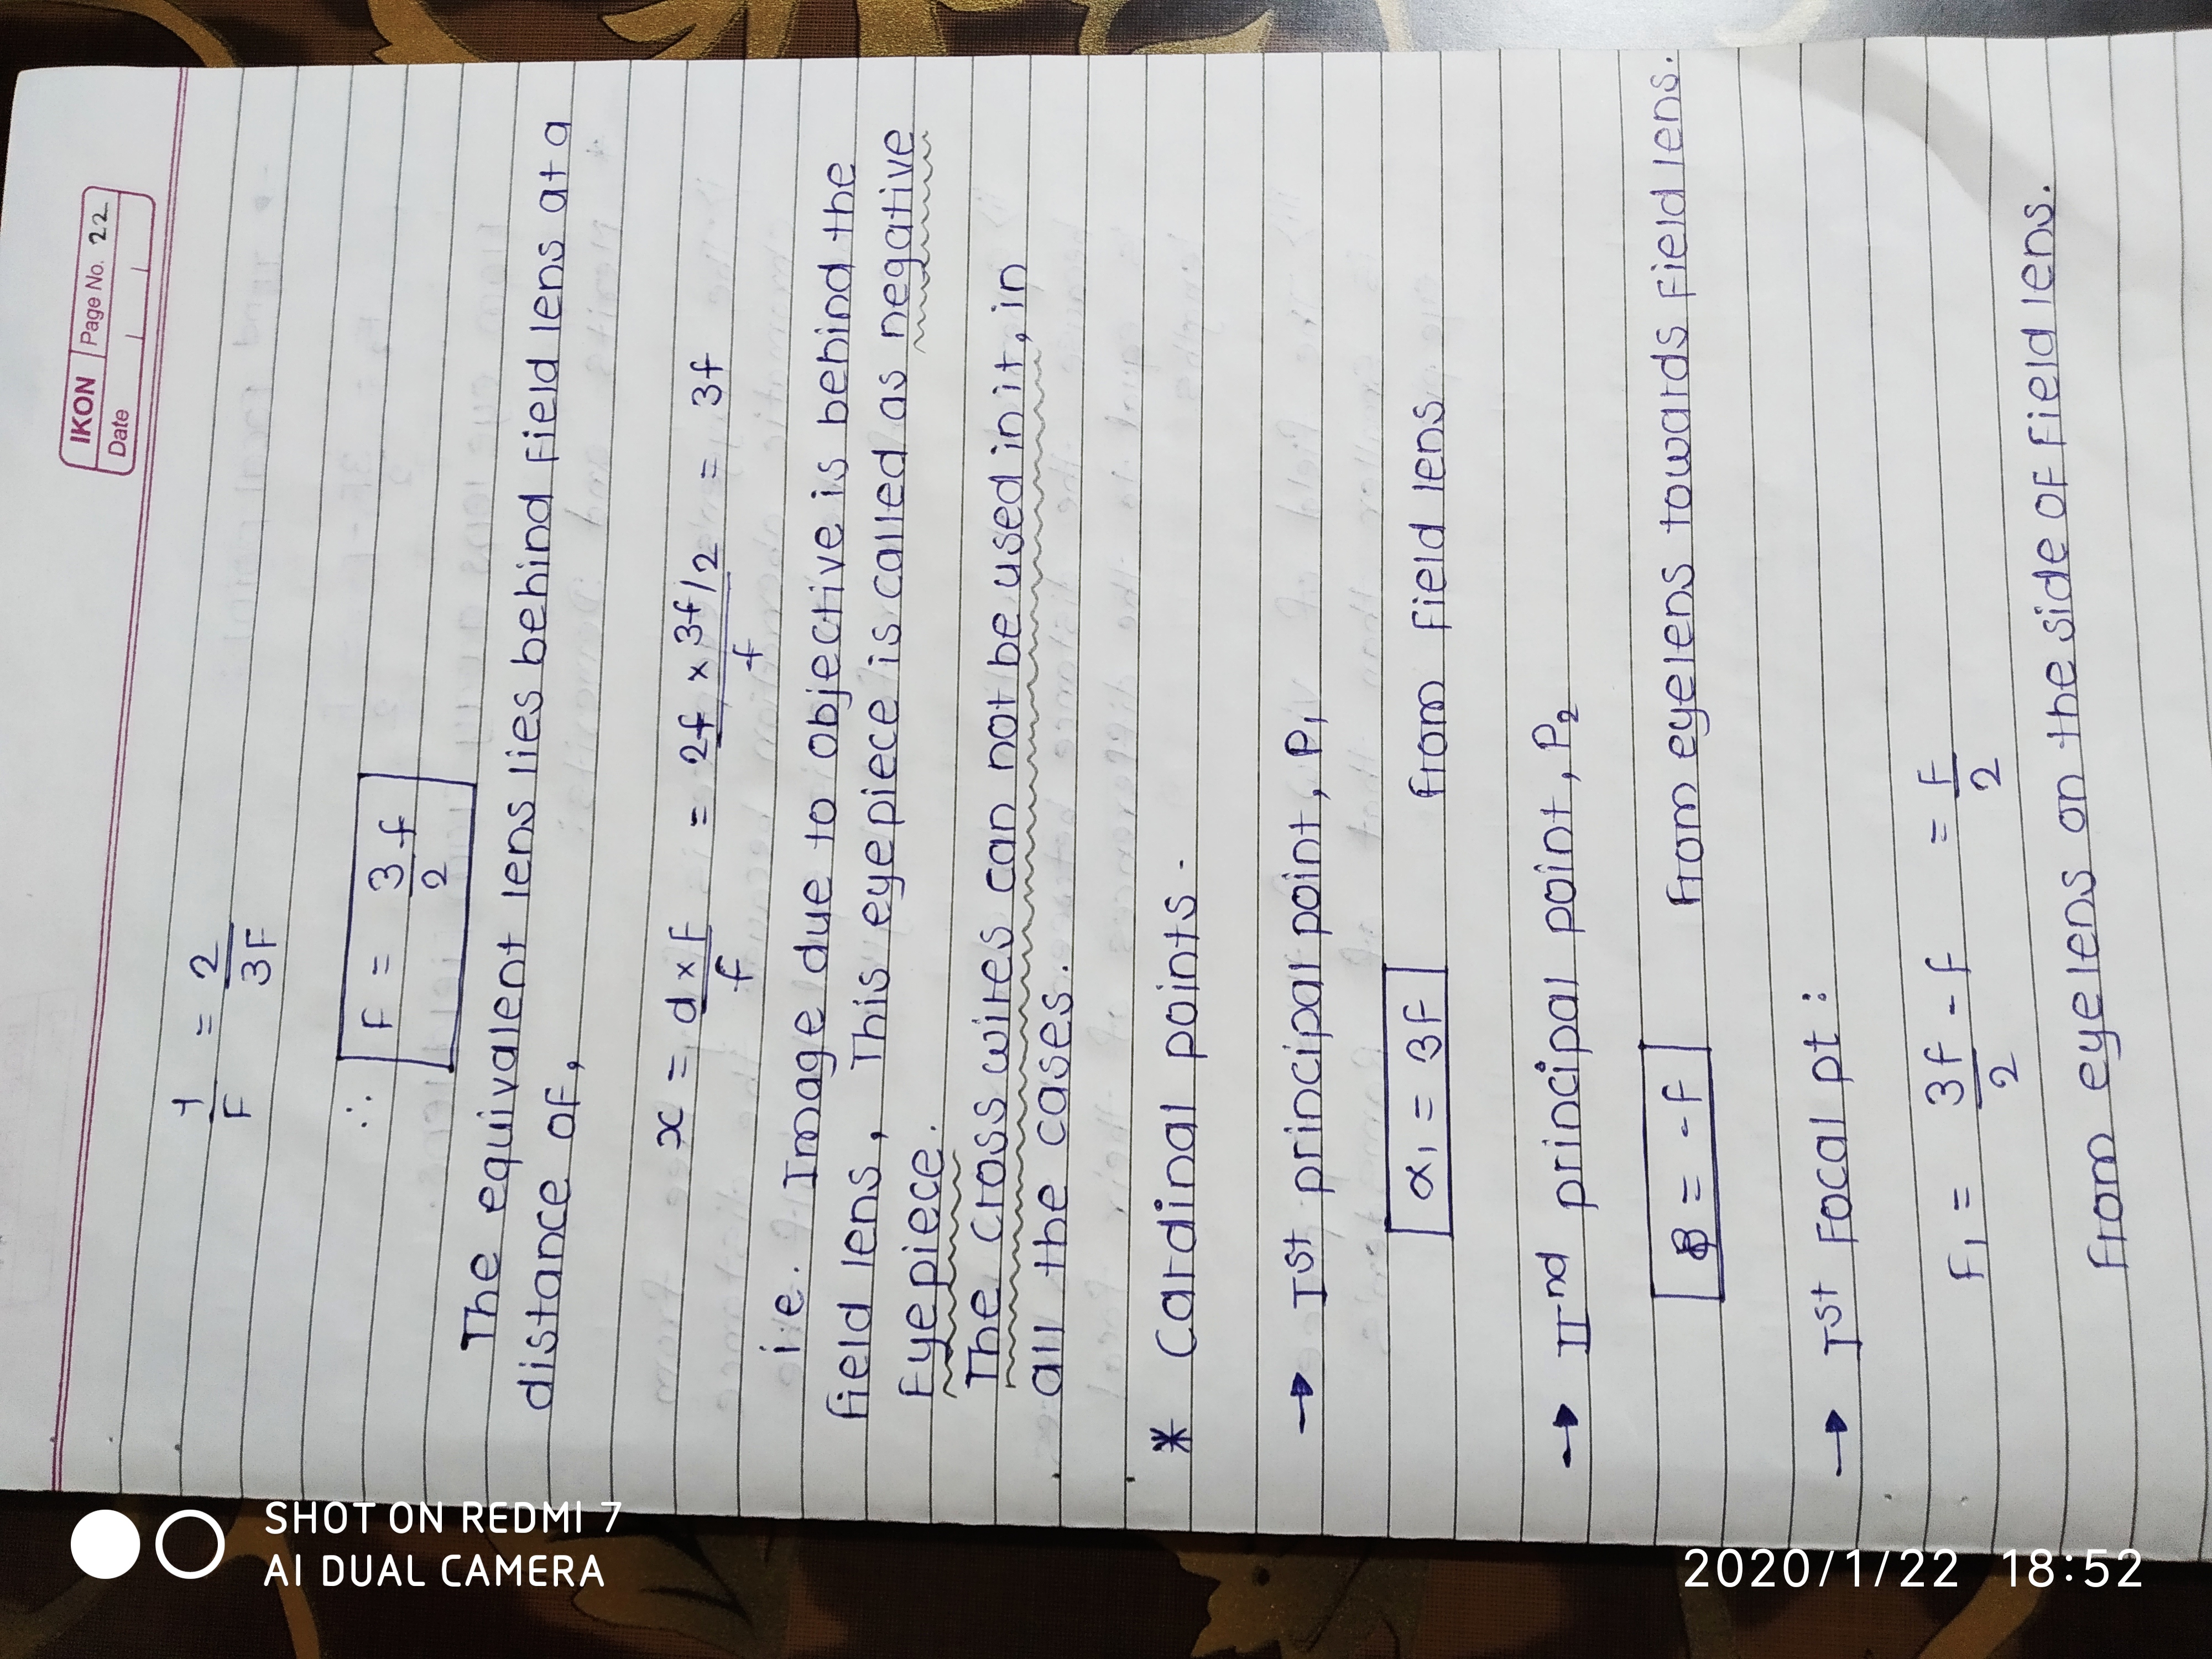 IKON Page No. 22
Date
1/F = 2/3F
∴ F = 3f/2
The equivalent lens lies behind field lens at a
distance of,
x = d×F/f = 2f × 3f/2/f = 3f
i.e. Image due to objective is behind the
field lens, This eyepiece is called as negative
Eyepiece.
The cross wires can not be used in it, in
all the cases.
* Cardinal points.
→ Ist principal point, P1
α1 = 3F from field lens
→ IInd principal point, P2
β = -F from eyelens towards field lens.
→ Ist Focal pt:
F1 = 3f/2 - F = F/2
From eyelens on the side of field lens.
SHOT ON REDMI 7
AI DUAL CAMERA
2020/1/22 18:52